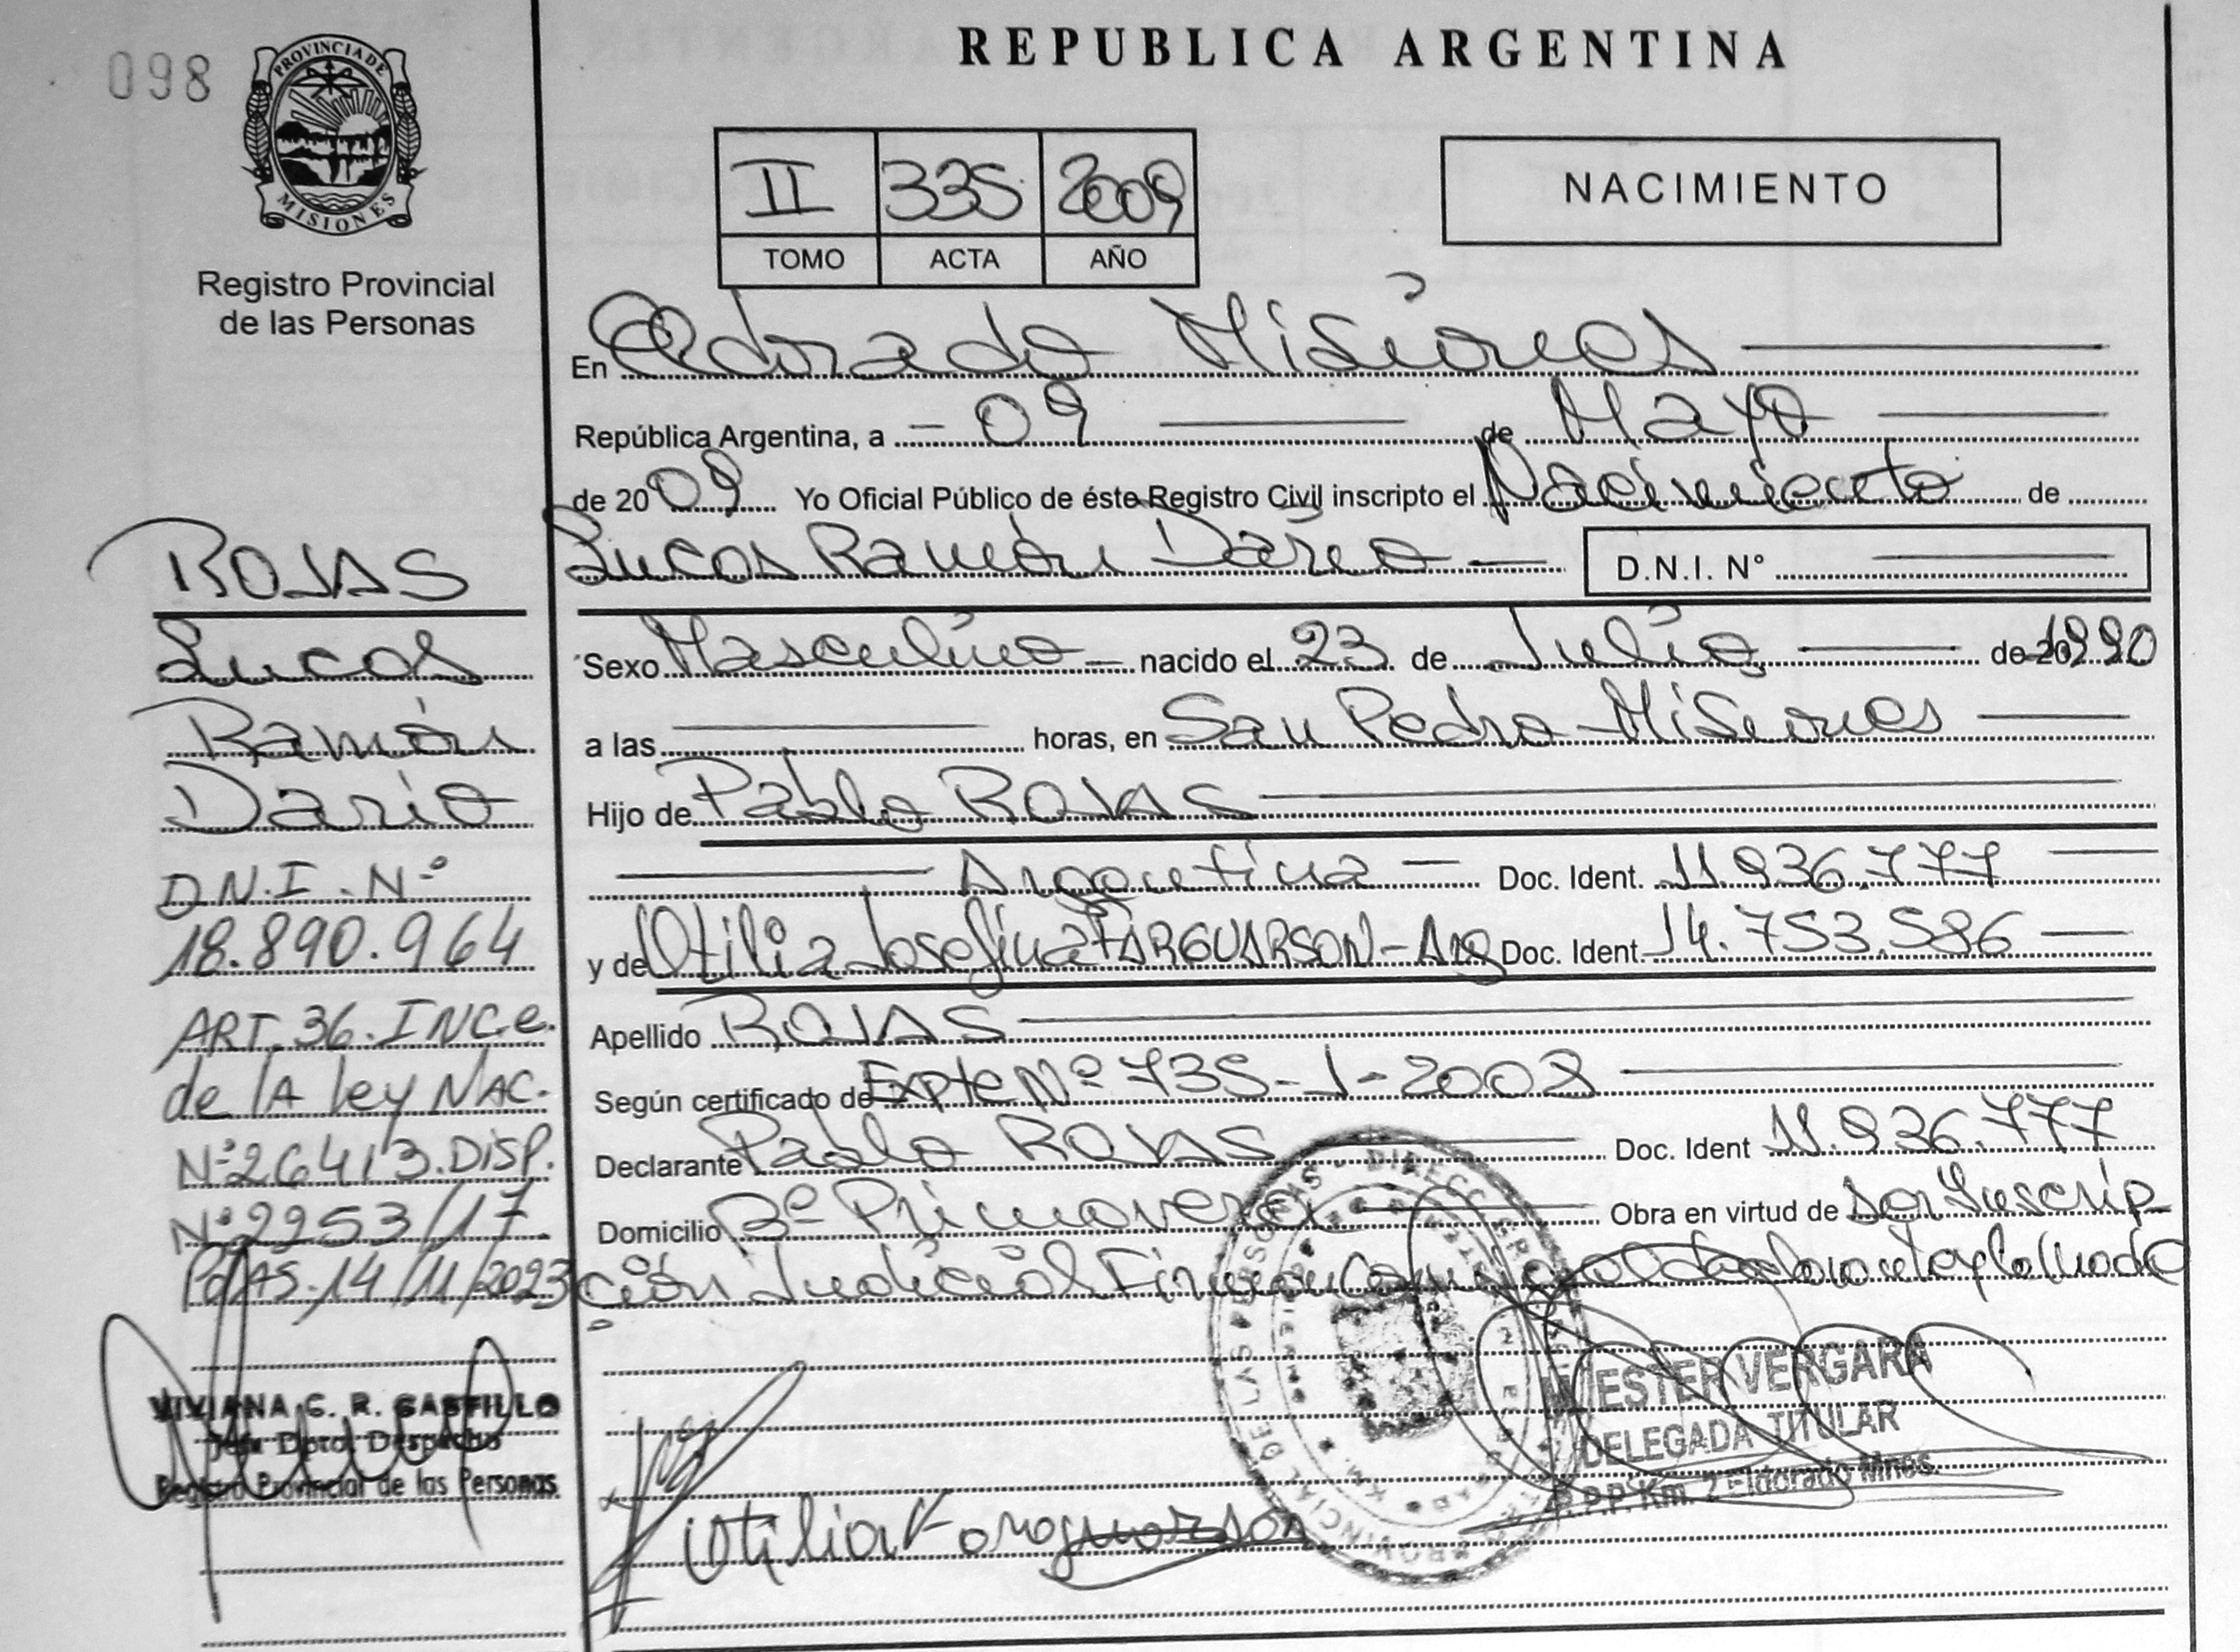 098
PROVINCIA DE
MISIONES
Registro Provincial
de las Personas
ROJAS
Lucas
Ramón
Dario
D.N.I. Nº
18.890.964
ART. 36. INC.e.
de la ley NAC.
Nº 26413. DISP.
Nº 2253/17
Pdas. 14/11/2023
VIVIANA C. R. CASTILLO
Jefe Dpto. Despacho
Registro Provincial de las Personas
REPUBLICA ARGENTINA
II 335 2009
TOMO ACTA AÑO
NACIMIENTO
En Eldorado Misiones
República Argentina, a - 09 de Mayo
de 2009 Yo Oficial Público de éste Registro Civil inscripto el Nacimiento de
Lucas Ramón Dario D.N.I. N°
Sexo Masculino nacido el 23 de Julio de 20 1990
a las horas, en San Pedro - Misiones
Hijo de Pablo ROJAS
Argentina Doc. Ident. 11.936.777
y de Otilia Josefina FARGUARSON - Arg Doc. Ident. 14.753.586
Apellido ROJAS
Según certificado de Expte Nº 735-J-2008
Declarante Pablo ROJAS Doc. Ident 11.936.777
Domicilio Bº Primavera Obra en virtud de ser Inscrip
ción Judicial Firman
M ESTER VERGARA
DELEGADA TITULAR
R.P.P. Km. 2 Eldorado Mnes.
Otilia Farguarson